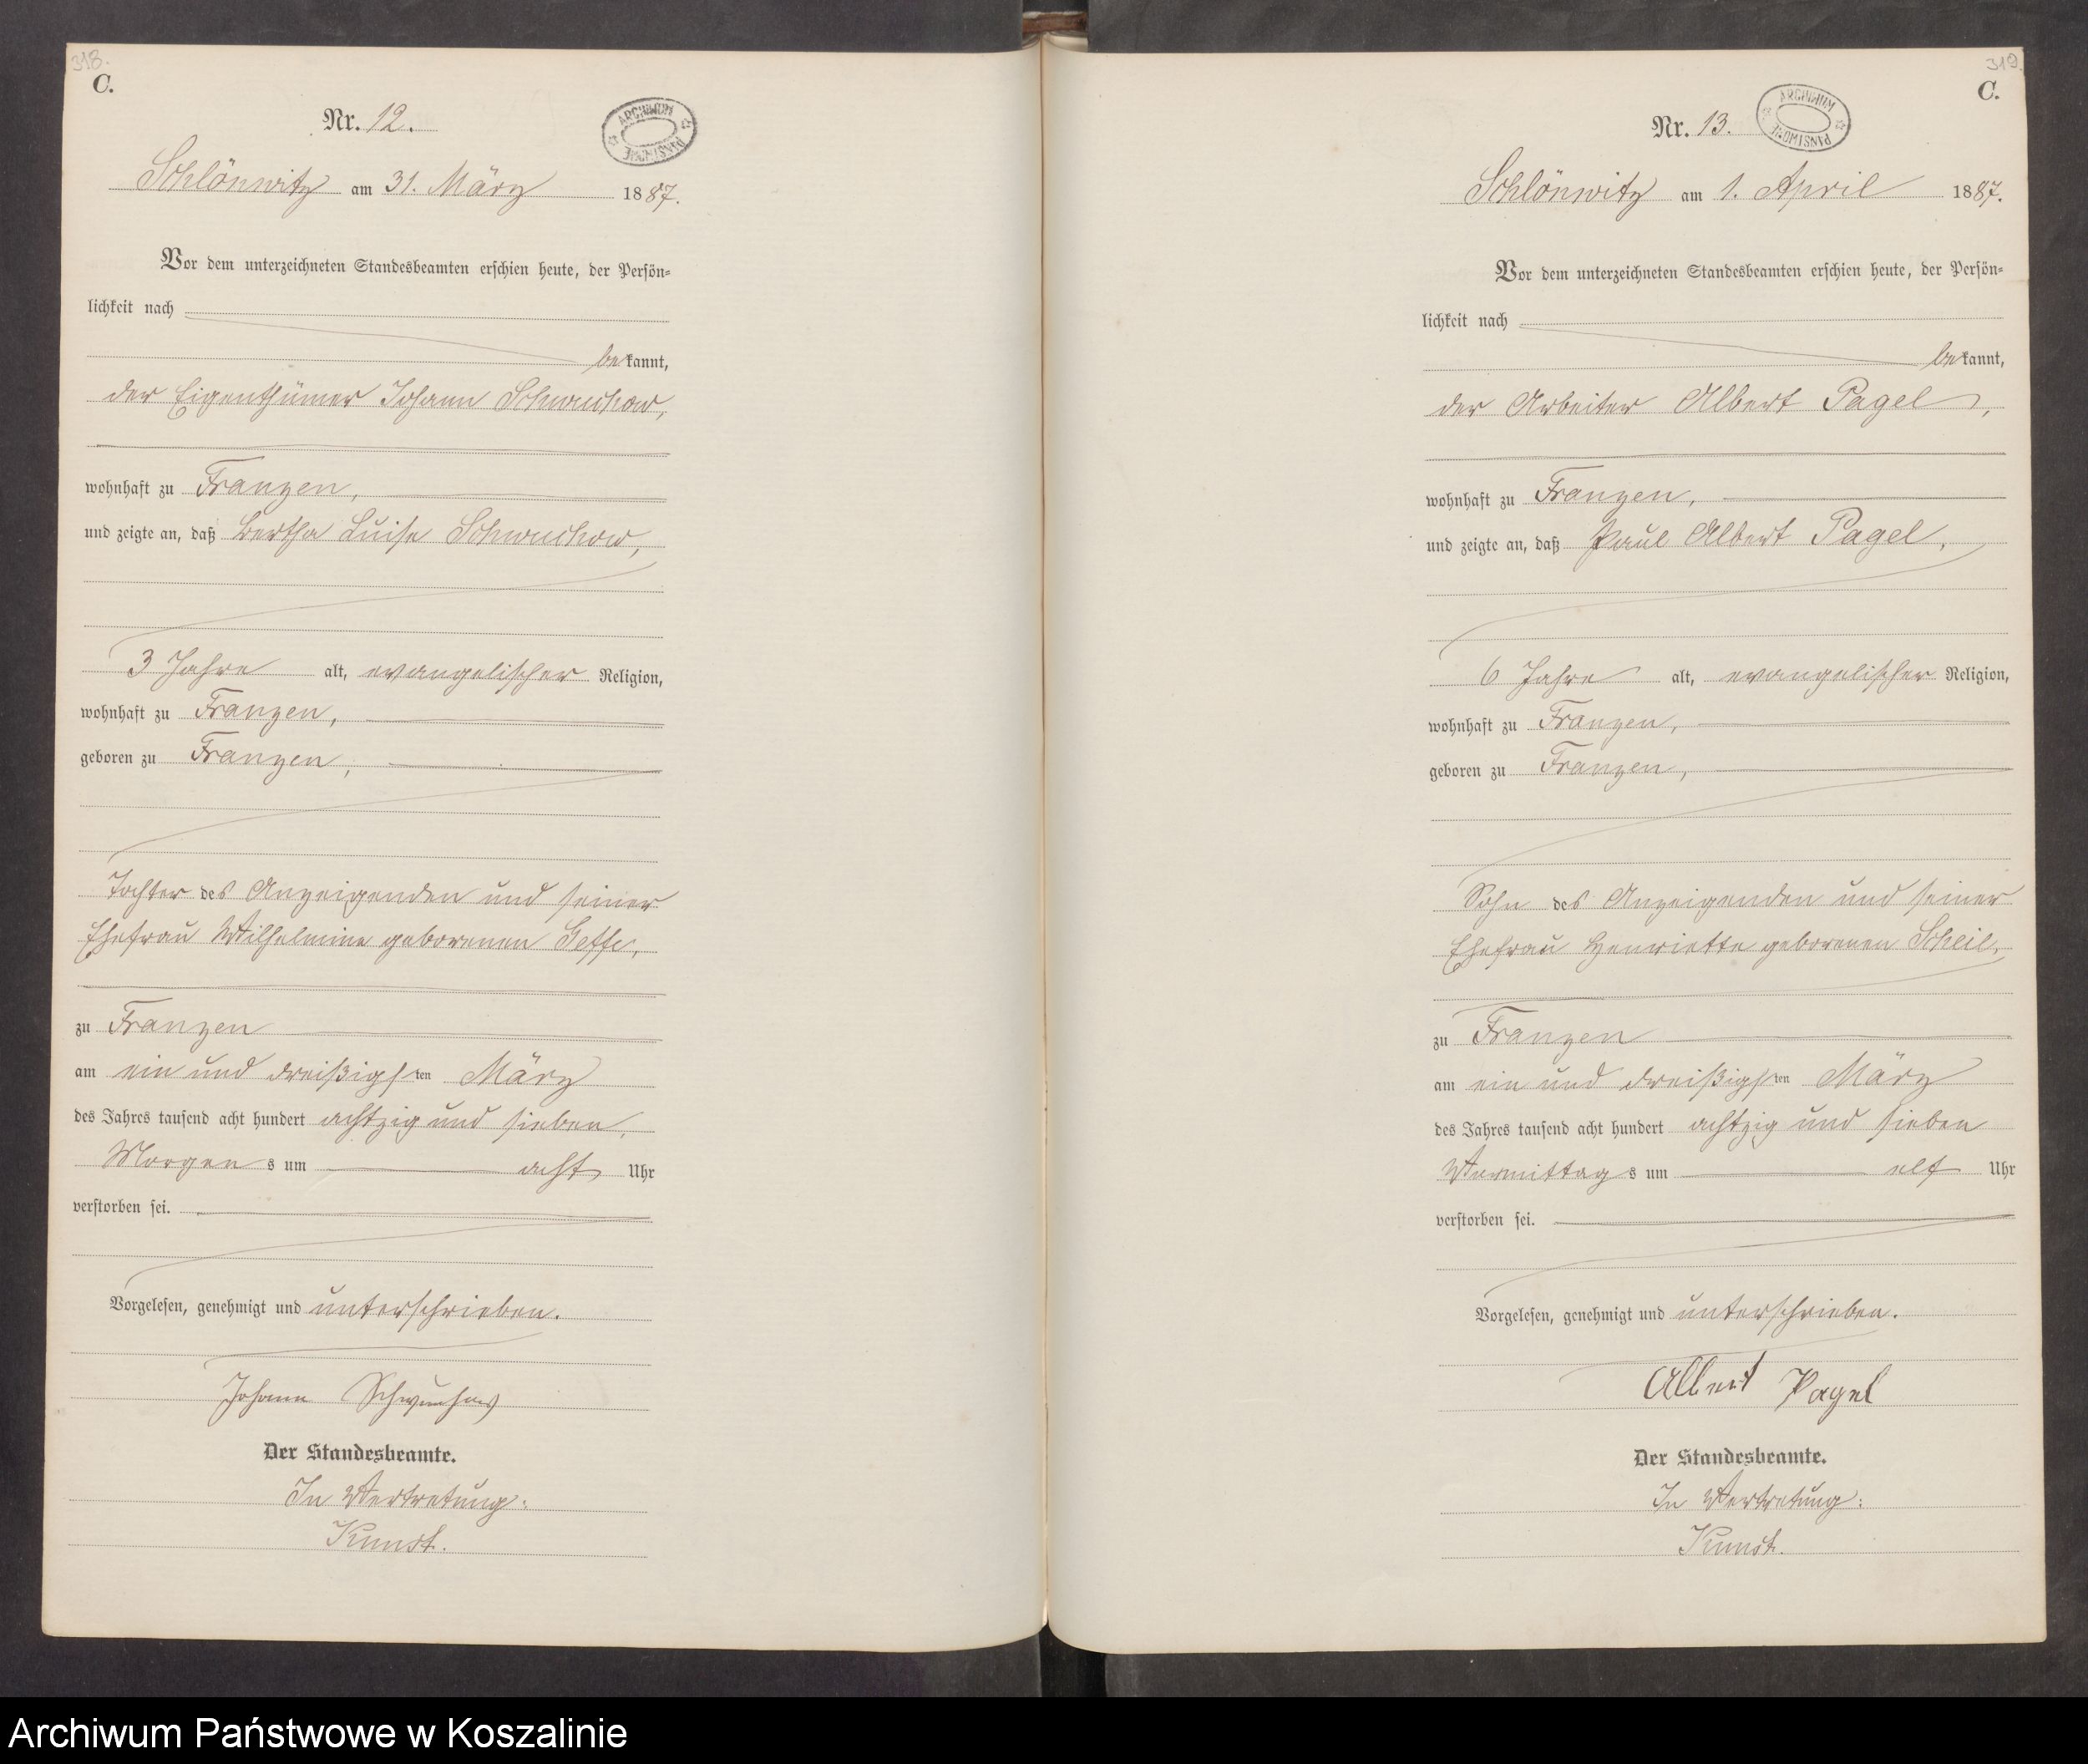 318.
C.
Nr. 12.
ARCHIWUM PAŃSTWOWE
Schlönwitz am 31. März 1887.
Vor dem unterzeichneten Standesbeamten erschien heute, der Persön-
lichkeit nach
bekannt,
der Eigenthümer Johann Schwuchow,
wohnhaft zu Franzen,
und zeigte an, daß Bertha Luise Schwuchow,
3 Jahre alt, evangelischer Religion,
wohnhaft zu Franzen,
geboren zu Franzen,
Tochter des Anzeigenden und seiner
Ehefrau Wilhelmine geborenen
zu Franzen
am ein und dreißigsten März
des Jahres tausend acht hundert achtzig und sieben,
Morgens um acht Uhr
verstorben sei.
Vorgelesen, genehmigt und unterschrieben.
Johann Schwuchow
Der Standesbeamte.
In Vertretung:
Kunst.
319.
C.
Nr. 13.
ARCHIWUM PAŃSTWOWE
Schlönwitz am 1. April 1887.
Vor dem unterzeichneten Standesbeamten erschien heute, der Persön-
lichkeit nach
bekannt,
der Arbeiter Albert Pagel,
wohnhaft zu Franzen,
und zeigte an, daß Paul Albert Pagel,
6 Jahre alt, evangelischer Religion,
wohnhaft zu Franzen,
geboren zu Franzen,
Sohn des Anzeigenden und seiner
Ehefrau Henriette geborenen Scheil,
zu Franzen
am ein und dreißigsten März
des Jahres tausend acht hundert achtzig und sieben
Vormittags um elf Uhr
verstorben sei.
Vorgelesen, genehmigt und unterschrieben.
Albert Pagel
Der Standesbeamte.
In Vertretung:
Kunst.
Archiwum Państwowe w Koszalinie